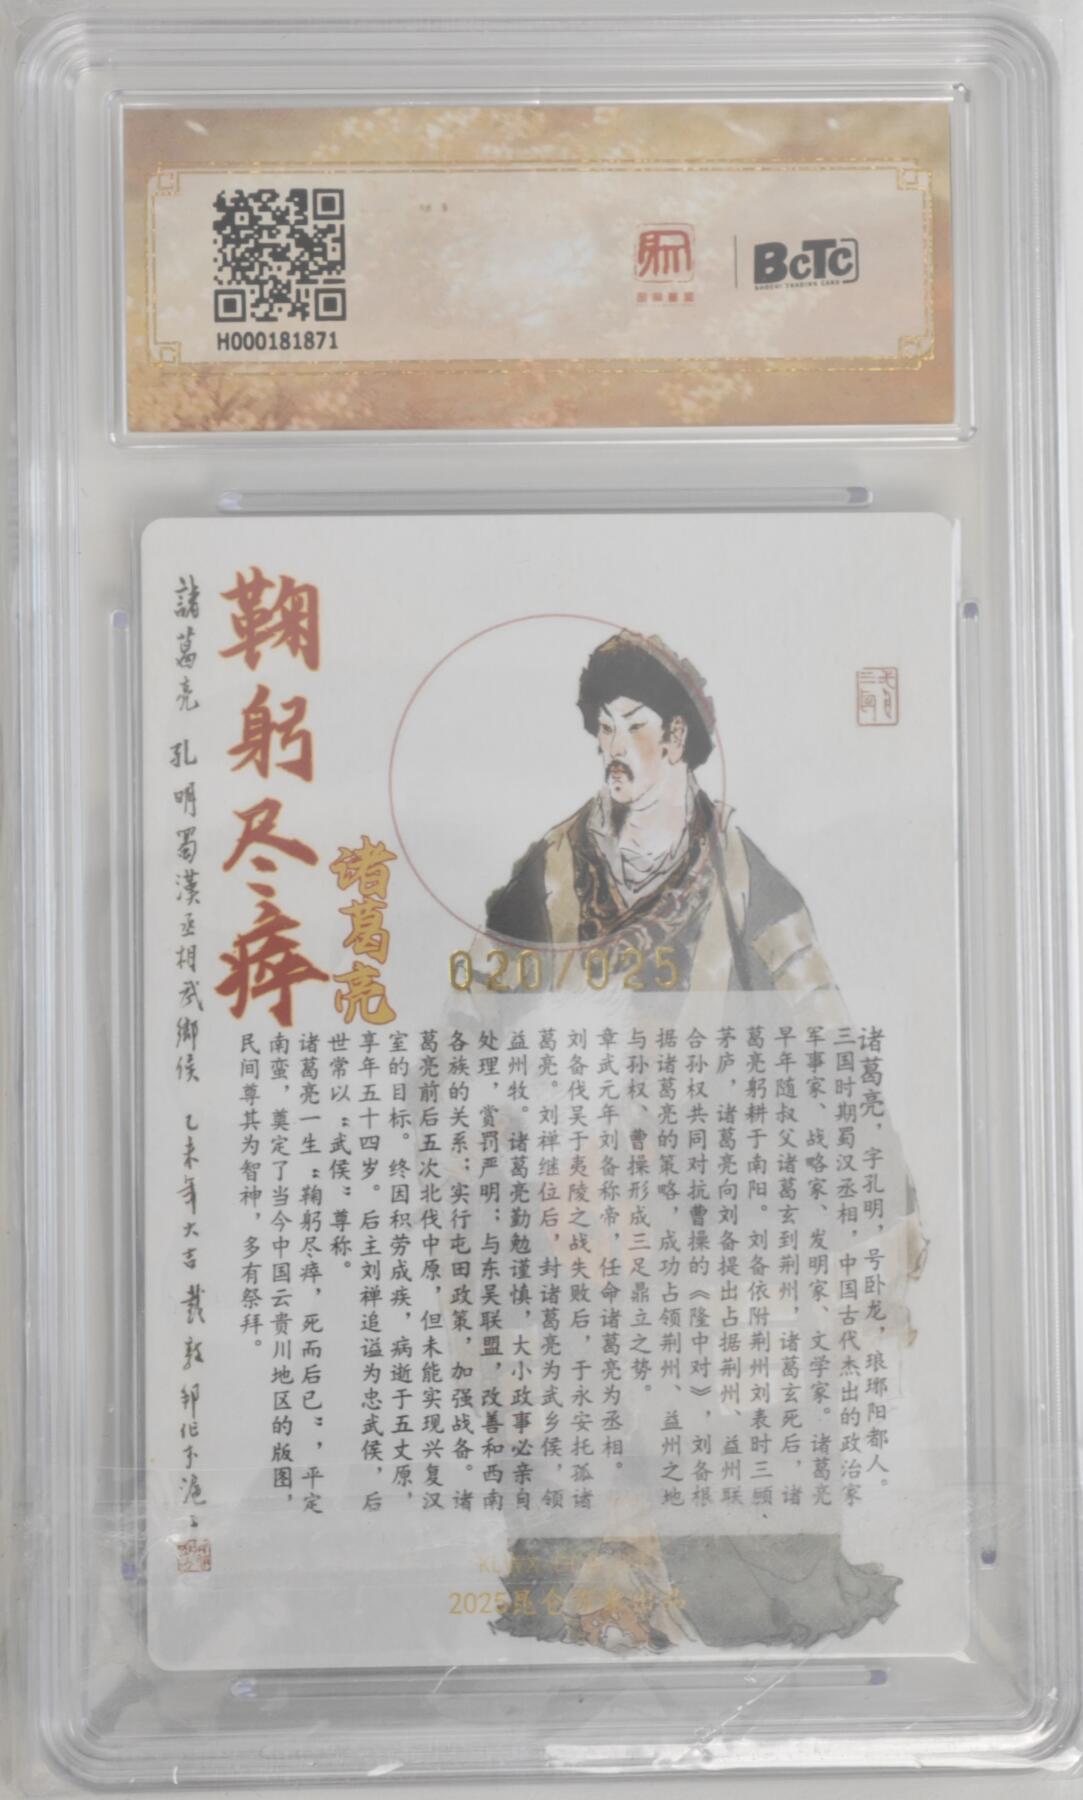 H000181871
BCTC
BAOCUI TRADING CARD
諸葛亮 孔明蜀漢丞相武鄉侯 乙未年大吉 戴敦邦作于滬上
鞠躬尽瘁
诸葛亮
020/025
诸葛亮，字孔明，号卧龙，琅琊阳都人。
三国时期蜀汉丞相，中国古代杰出的政治家
军事家、战略家、发明家、文学家。诸葛亮
早年随叔父诸葛玄到荆州，诸葛玄死后，诸
葛亮躬耕于南阳。刘备依附荆州刘表时三顾
茅庐，诸葛亮向刘备提出占据荆州、益州联
合孙权共同对抗曹操的《隆中对》，刘备根
据诸葛亮的策略，成功占领荆州、益州之地
与孙权、曹操形成三足鼎立之势。
章武元年刘备称帝，任命诸葛亮为丞相。
刘备伐吴于夷陵之战失败后，于永安托孤诸
葛亮。刘禅继位后，封诸葛亮为武乡侯，领
益州牧。诸葛亮勤勉谨慎，大小政事必亲自
处理，赏罚严明；与东吴联盟，改善和西南
各族的关系；实行屯田政策，加强战备。诸
葛亮前后五次北伐中原，但未能实现兴复汉
室的目标。终因积劳成疾，病逝于五丈原，
享年五十四岁。后主刘禅追谥为忠武侯，后
世常以“武侯”尊称。
诸葛亮一生“鞠躬尽瘁，死而后已”，平定
南蛮，奠定了当今中国云贵川地区的版图，
民间尊其为智神，多有祭拜。
2025昆仑
出品